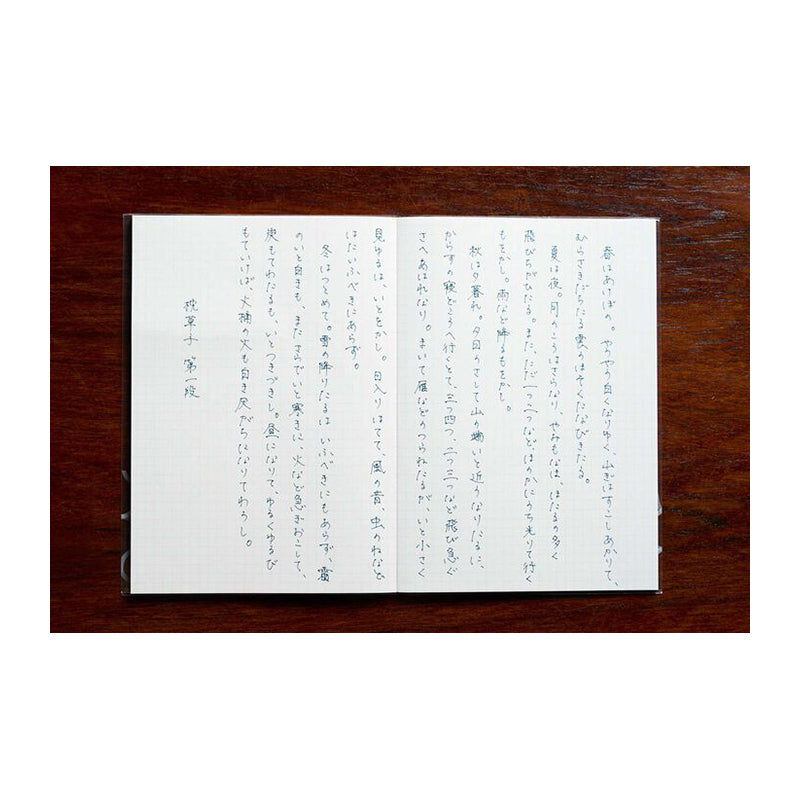 春はあけぼの。やうやう白くなりゆく、山ぎはすこしあかりて、
むらさきだちたる雲のほそくたなびきたる。
夏は夜。月のころはさらなり、やみもなほ、ほたるの多く
飛びちがひたる。また、ただ一つ二つなどほのかにうち光りて行く
もをかし。雨など降るもをかし。
秋は夕暮れ。夕日のさして山の端いと近うなりたるに、
からすの寝どころへ行くとて、三つ四つ、二つ三つなど飛び急ぐ
さへあはれなり。まいて雁などのつらねたるが、いと小さく
見ゆるは、いとをかし。日入りはてて、風の音、虫のねなど、
はたいふべきにあらず。
冬はつとめて。雪の降りたるは いふべきにもあらず、霜
のいと白きも、またさらでもいと寒きに、火など急ぎおこして、
炭もてわたるも、いとつきづきし。昼になりて、ゆるくゆるび
もていけば、火桶の火も白き灰がちになりてわろし。
枕草子 第一段